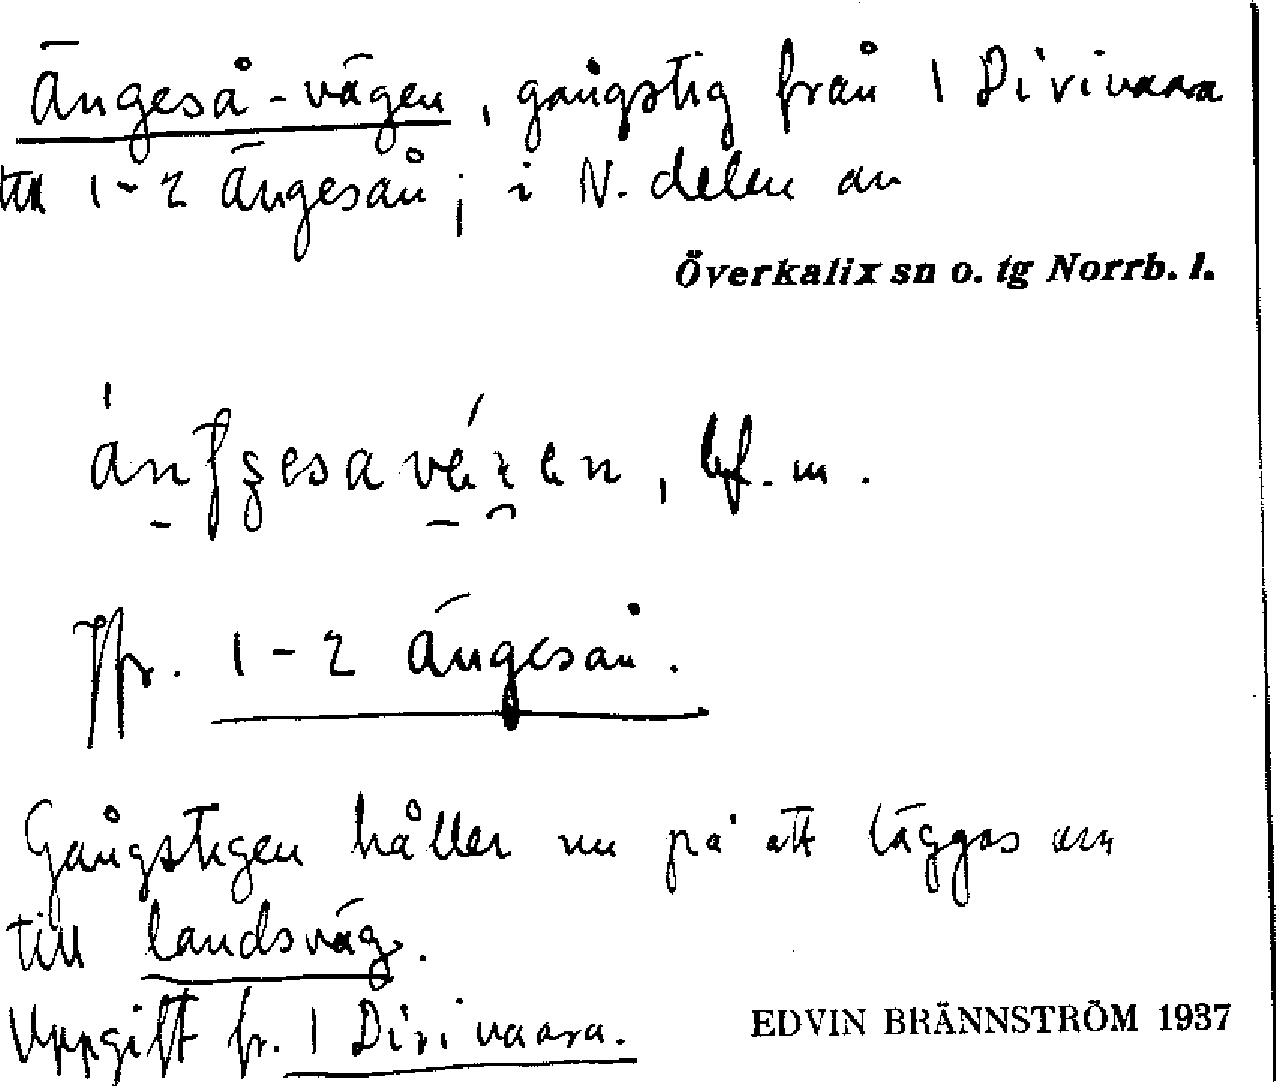 Ängeså-vägen, gångstig från 1 Dirivaara
till 1-2 Ängesån; i N. delen av
Överkalix sn o. tg Norrb. l.
, bf. m.
Jfr. 1-2 Ängesån.
Gångstigen håller nu på att läggas om
till landsväg.
Uppgift fr. 1 Dirivaara.
EDVIN BRÄNNSTRÖM 1937